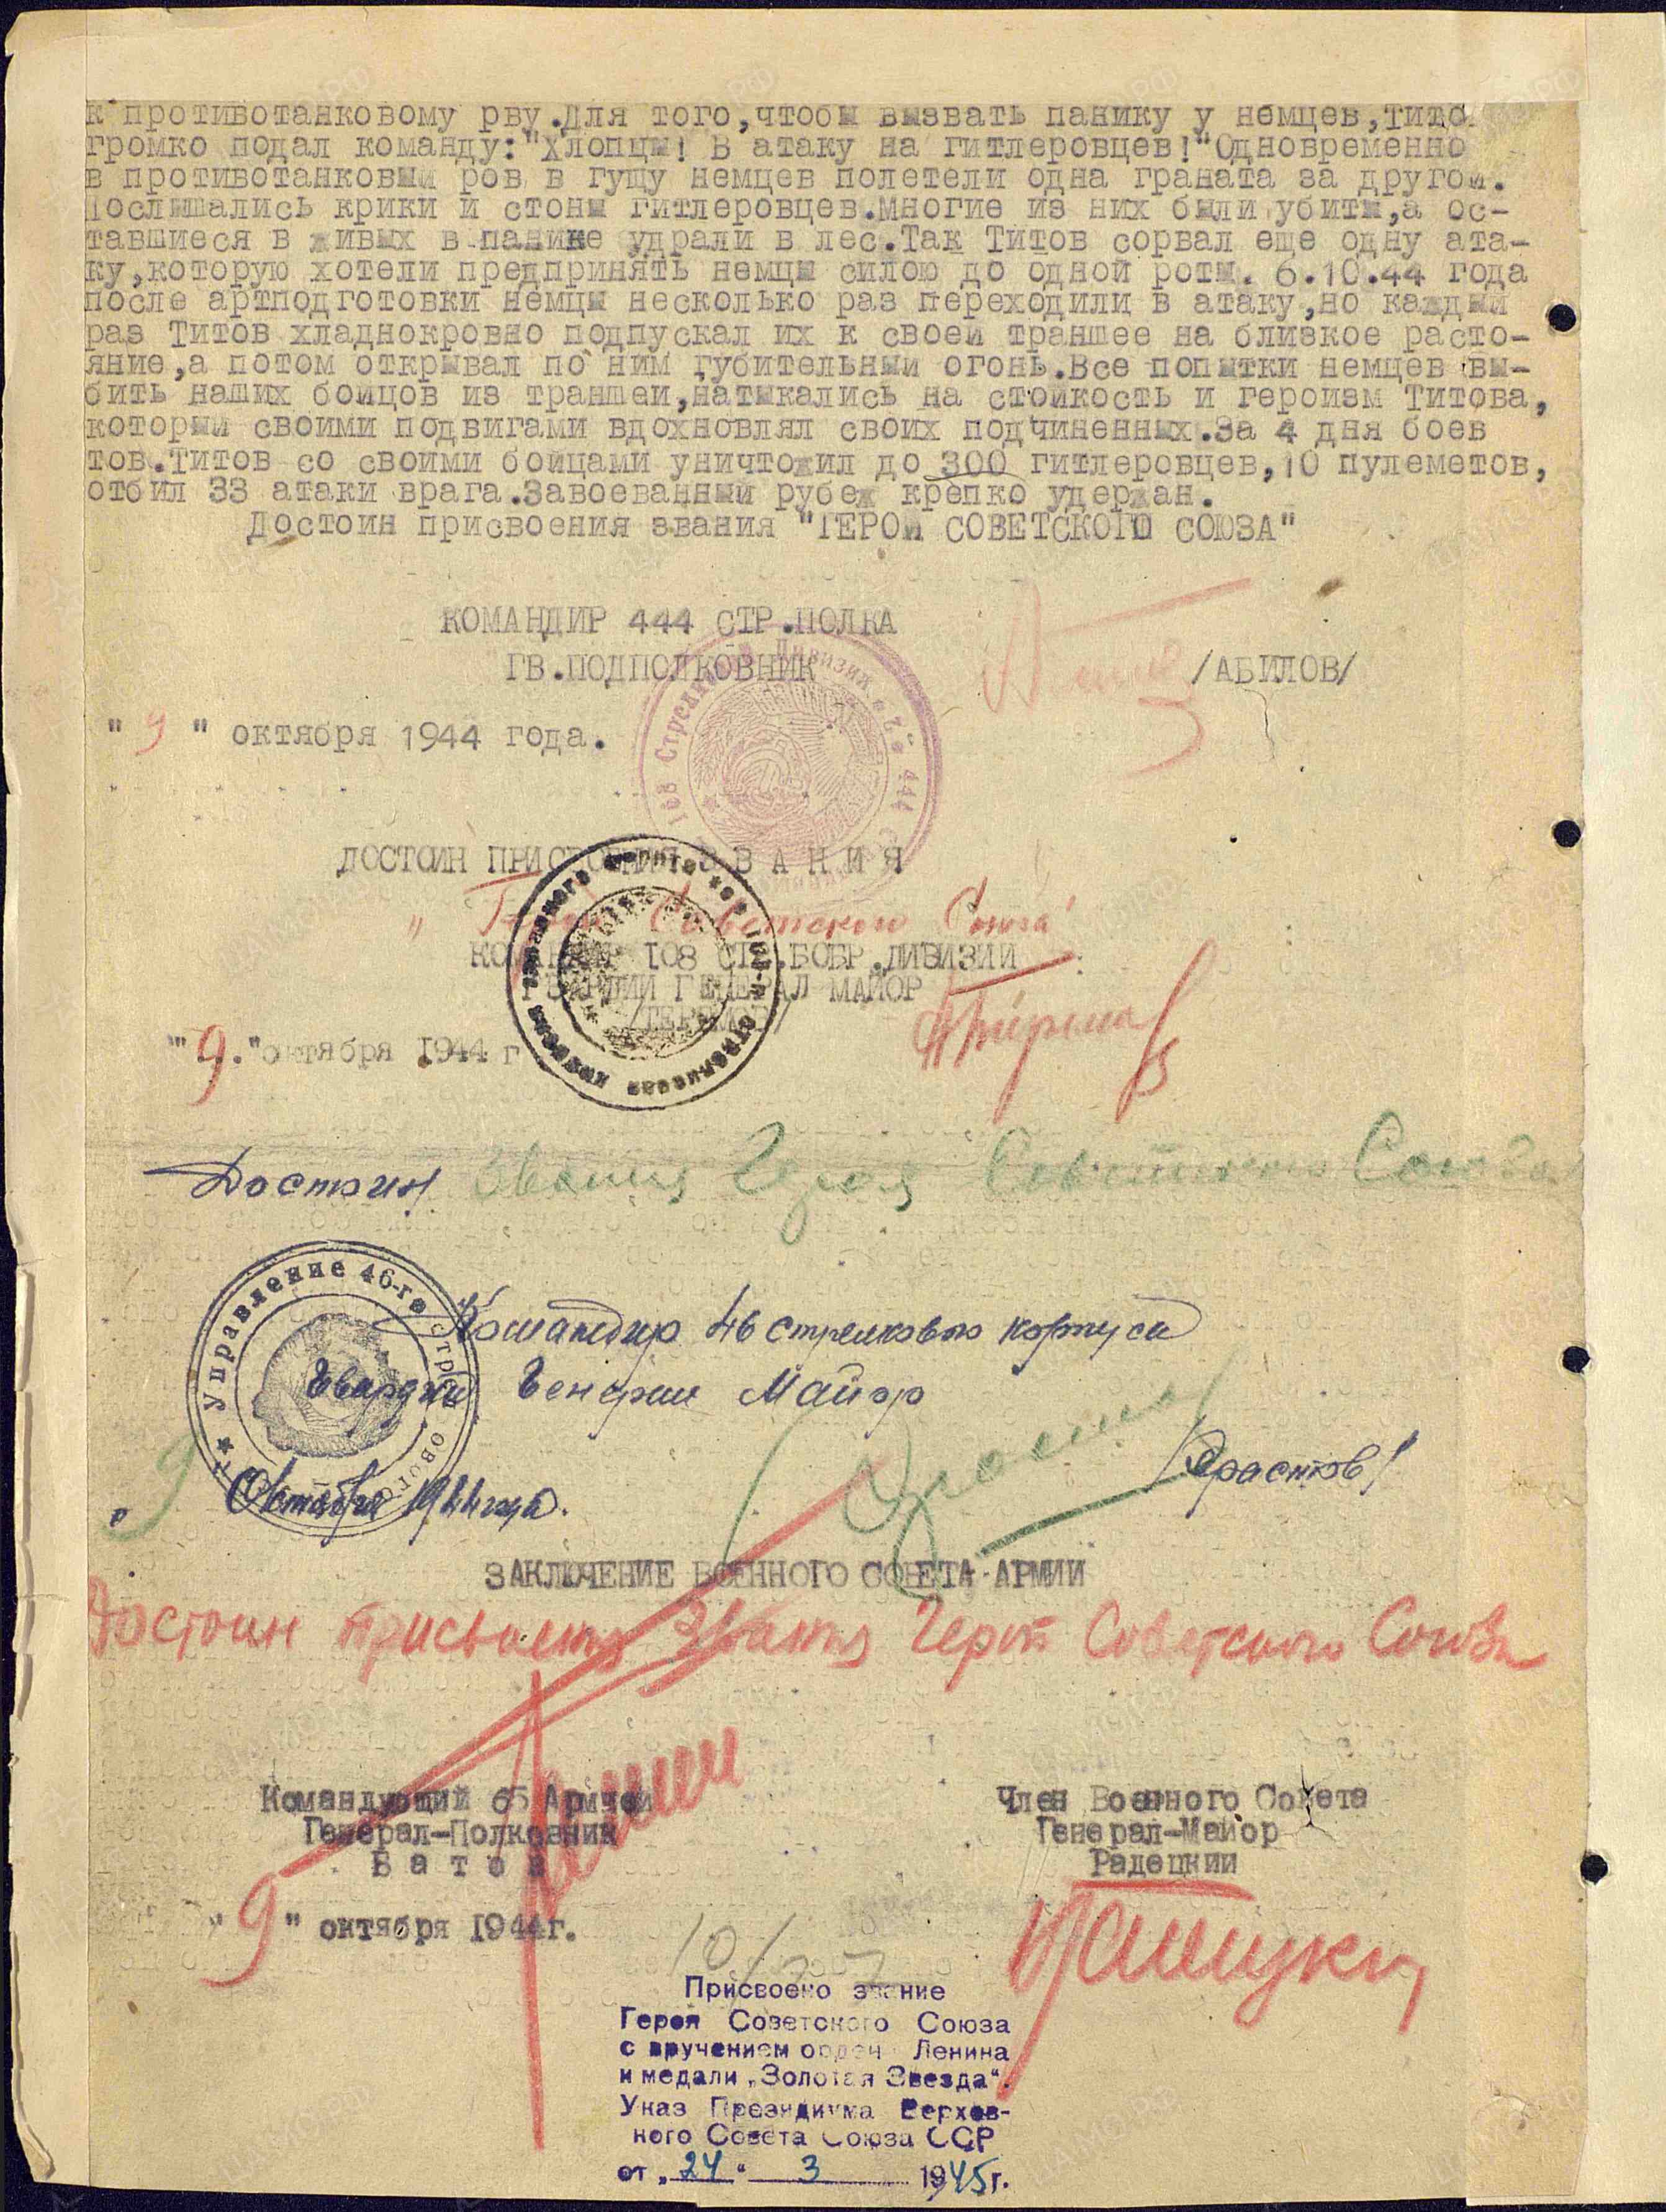 к противотанковому рву.Для того,чтобы вызвать панику у немцев,Тито
громко подал команду:"Хлопцы! В атаку на гитлеровцев!"Одновременно
в противотанковый ров в гущу немцев полетели одна граната за другой.
Послышались крики и стоны гитлеровцев.Многие из них были убиты,а ос-
тавшиеся в живых в панике удрали в лес.Так Титов сорвал еще одну ата-
ку,которую хотели предпринять немцы силою до одной роты. 6.10.44 года
после артподготовки немцы несколько раз переходили в атаку,но каждый
раз Титов хладнокровно подпускал их к своей траншее на близкое расто-
яние,а потом открывал по ним губительный огонь.Все попытки немцев вы-
бить наших бойцов из траншеи,натыкались на стойкость и героизм Титова,
который своими подвигами вдохновлял своих подчиненных.За 4 дня боев
тов.Титов со своими бойцами уничтожил до 300 гитлеровцев,10 пулеметов,
отбил 33 атаки врага.Завоеванный рубеж крепко удержан.
Достоин присвоения звания "ГЕРОЙ СОВЕТСКОГО СОЮЗА"
КОМАНДИР 444 СТР.ПОЛКА
ГВ.ПОДПОЛКОВНИК /АБИЛОВ/
"9" октября 1944 года.
108 Стрелковая Дивизия 444
ДОСТОИН ПРИСВОЕНИЯ ЗВАНИЯ
"Герой Советского Союза"
КОМАНДИР 108 СТР.БОБР.ДИВИЗИИ
ГВАРДИИ ГЕНЕРАЛ МАЙОР
/ТЕРЕМОВ/
"9."октября 1944 г
Достоин звания Героя Советского Союза
Управление 46-го стрелкового
Командир 46 стрелкового корпуса
Гвардии Генерал Майор
/Эрастов/
"9 Октября 1944 года.
ЗАКЛЮЧЕНИЕ ВОЕННОГО СОВЕТА АРМИИ
Достоин присвоения звания Герой Советского Союза
Командующий 65 Армией
Генерал-Полковник
Батов
Член Военного Совета
Генерал-Майор
Радецкий
"9" октября 1944г.
Присвоено звание
Героя Советского Союза
с вручением орден Ленина
и медали „Золотая Звезда".
Указ Президиума Верхов-
ного Совета Союза ССР
от „24" 3 1945г.